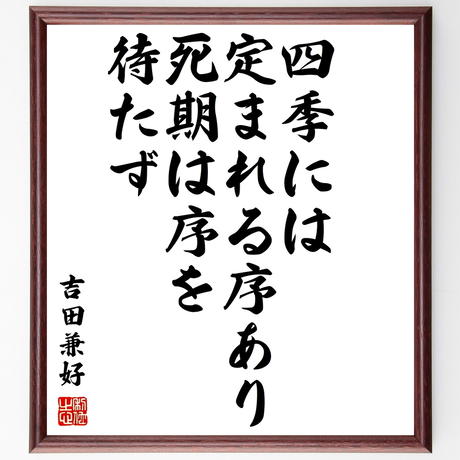 四季には
定まれる序あり
死期は序を
待たず
吉田兼好